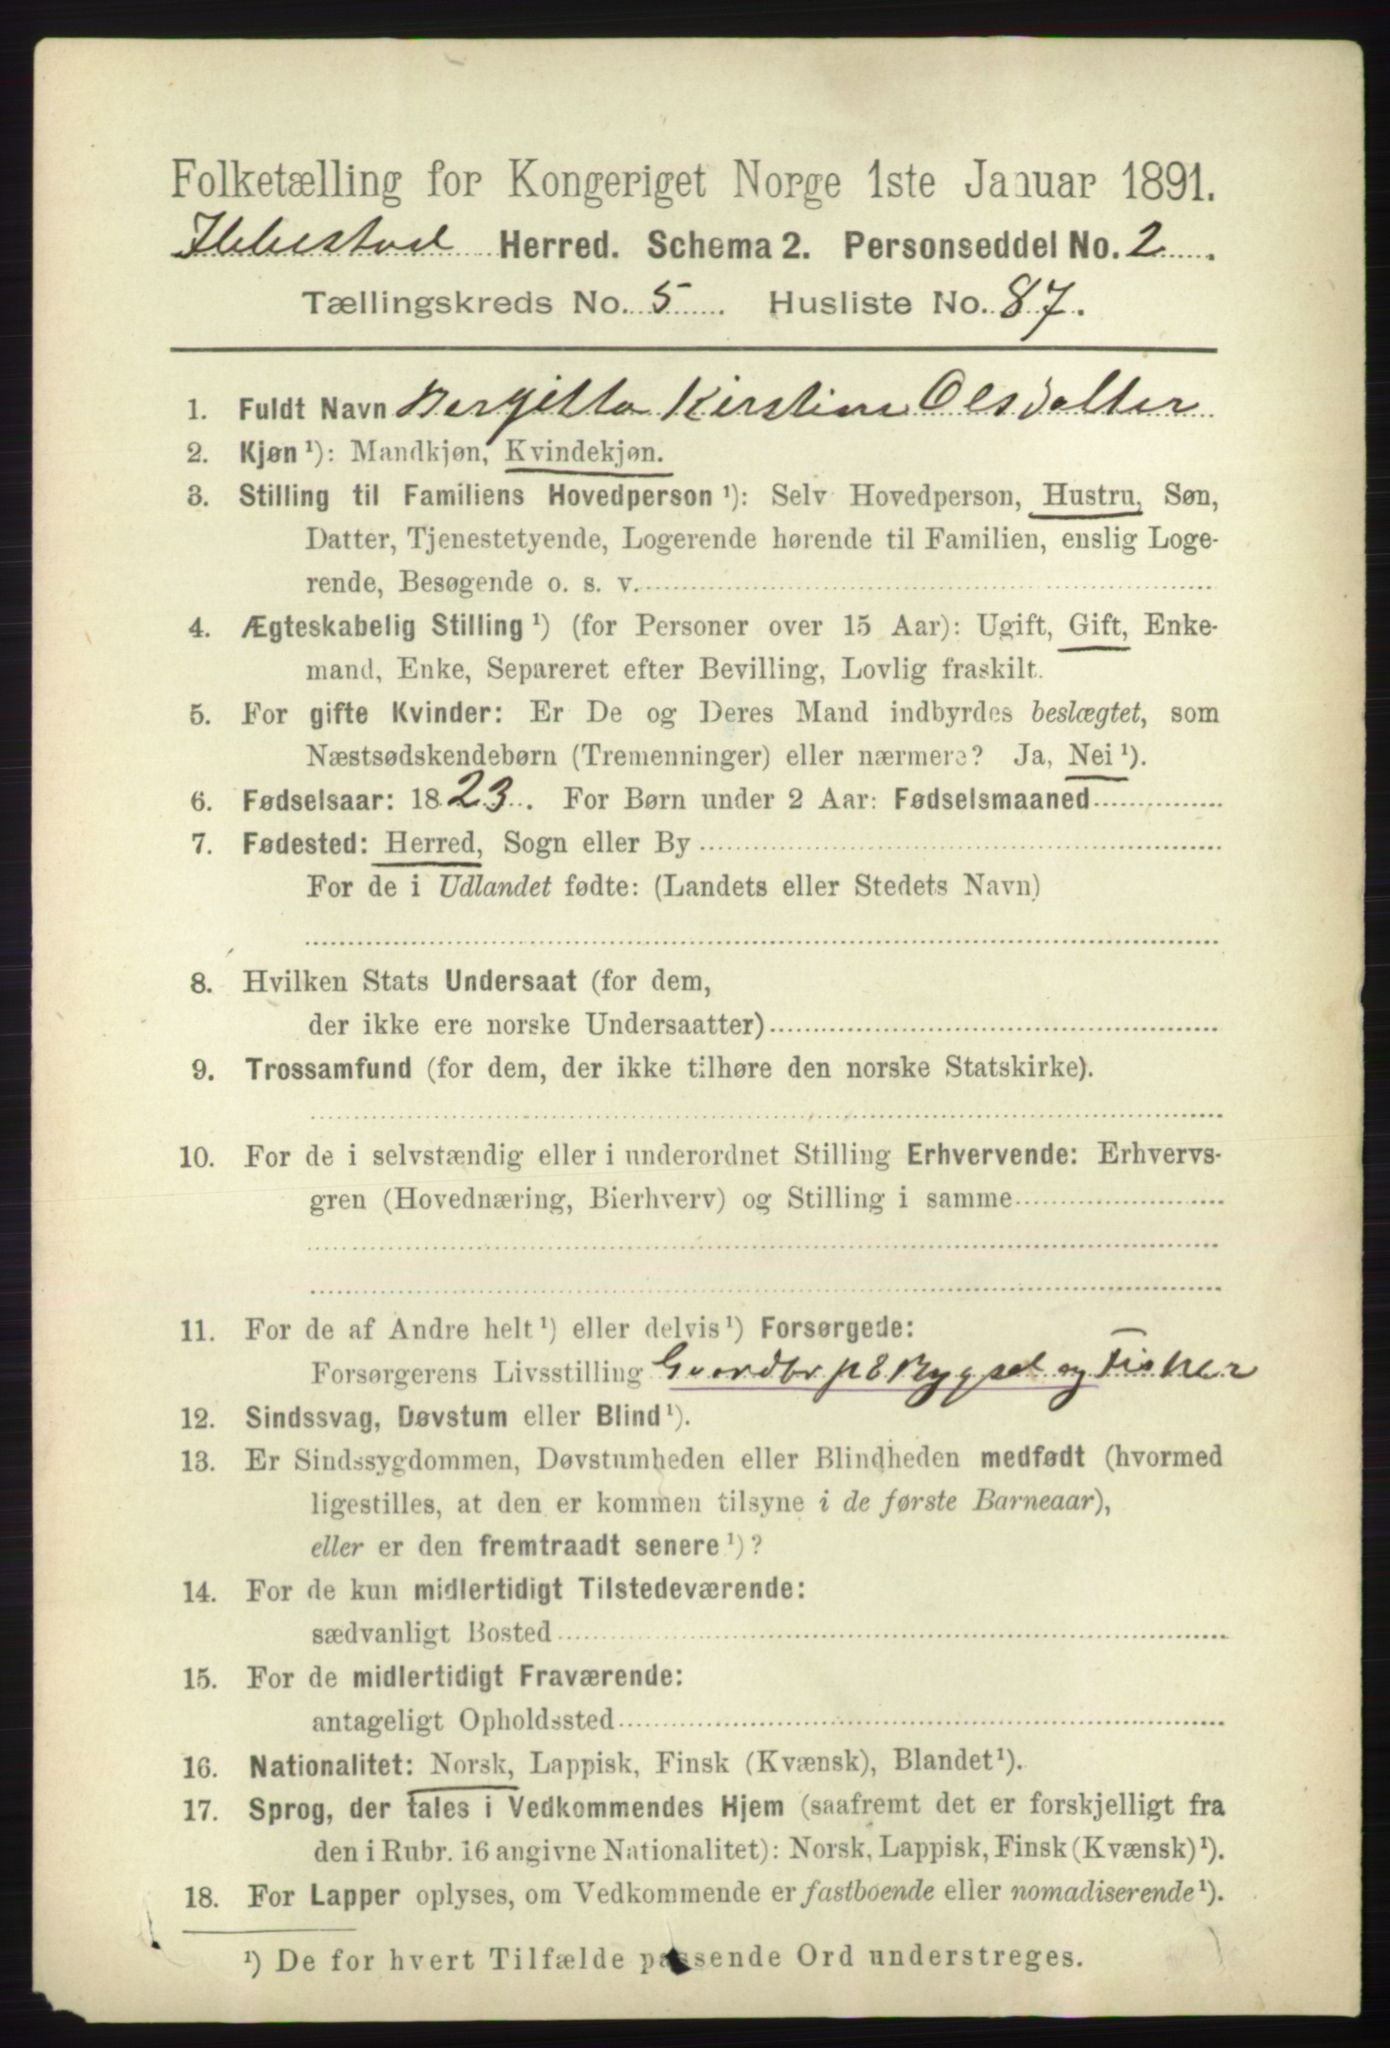 Folketælling for Kongeriget Norge 1ste Januar 1891.
Ibbestad Herred. Schema 2. Personseddel No. 2
Tællingskreds No. 5 Husliste No. 87.
1. Fuldt Navn Bergitta Kirstine Olsdatter
2. Kjøn¹): Mandkjøn, Kvindekjøn.
3. Stilling til Familiens Hovedperson¹): Selv Hovedperson, Hustru, Søn,
Datter, Tjenestetyende, Logerende hørende til Familien, enslig Loge-
rende, Besøgende o. s. v.
4. Ægteskabelig Stilling¹) (for Personer over 15 Aar): Ugift, Gift, Enke-
mand, Enke, Separeret efter Bevilling, Lovlig fraskilt.
5. For gifte Kvinder: Er De og Deres Mand indbyrdes beslægtet, som
Næstsødskendebørn (Tremenninger) eller nærmere? Ja, Nei¹).
6. Fødselsaar: 1823. For Børn under 2 Aar: Fødselsmaaned
7. Fødested: Herred, Sogn eller By
For de i Udlandet fødte: (Landets eller Stedets Navn)
8. Hvilken Stats Undersaat (for dem,
der ikke ere norske Undersaatter)
9. Trossamfund (for dem, der ikke tilhøre den norske Statskirke).
10. For de i selvstændig eller i underordnet Stilling Erhvervende: Erhvervs-
gren (Hovednæring, Bierhverv) og Stilling i samme
11. For de af Andre helt¹) eller delvis¹) Forsørgede:
Forsørgerens Livsstilling Gaardbr på Bygsel og Fisker
12. Sindssvag, Døvstum eller Blind¹).
13. Er Sindssygdommen, Døvstumheden eller Blindheden medfødt (hvormed
ligestilles, at den er kommen tilsyne i de første Barneaar),
eller er den fremtraadt senere¹)?
14. For de kun midlertidigt Tilstedeværende:
sædvanligt Bosted
15. For de midlertidigt Fraværende:
antageligt Opholdssted
16. Nationalitet: Norsk, Lappisk, Finsk (Kvænsk), Blandet¹).
17. Sprog, der tales i Vedkommendes Hjem (saafremt det er forskjelligt fra
den i Rubr. 16 angivne Nationalitet): Norsk, Lappisk, Finsk (Kvænsk)¹).
18. For Lapper oplyses, om Vedkommende er fastboende eller nomadiserende¹).
¹) De for hvert Tilfælde passende Ord understreges.